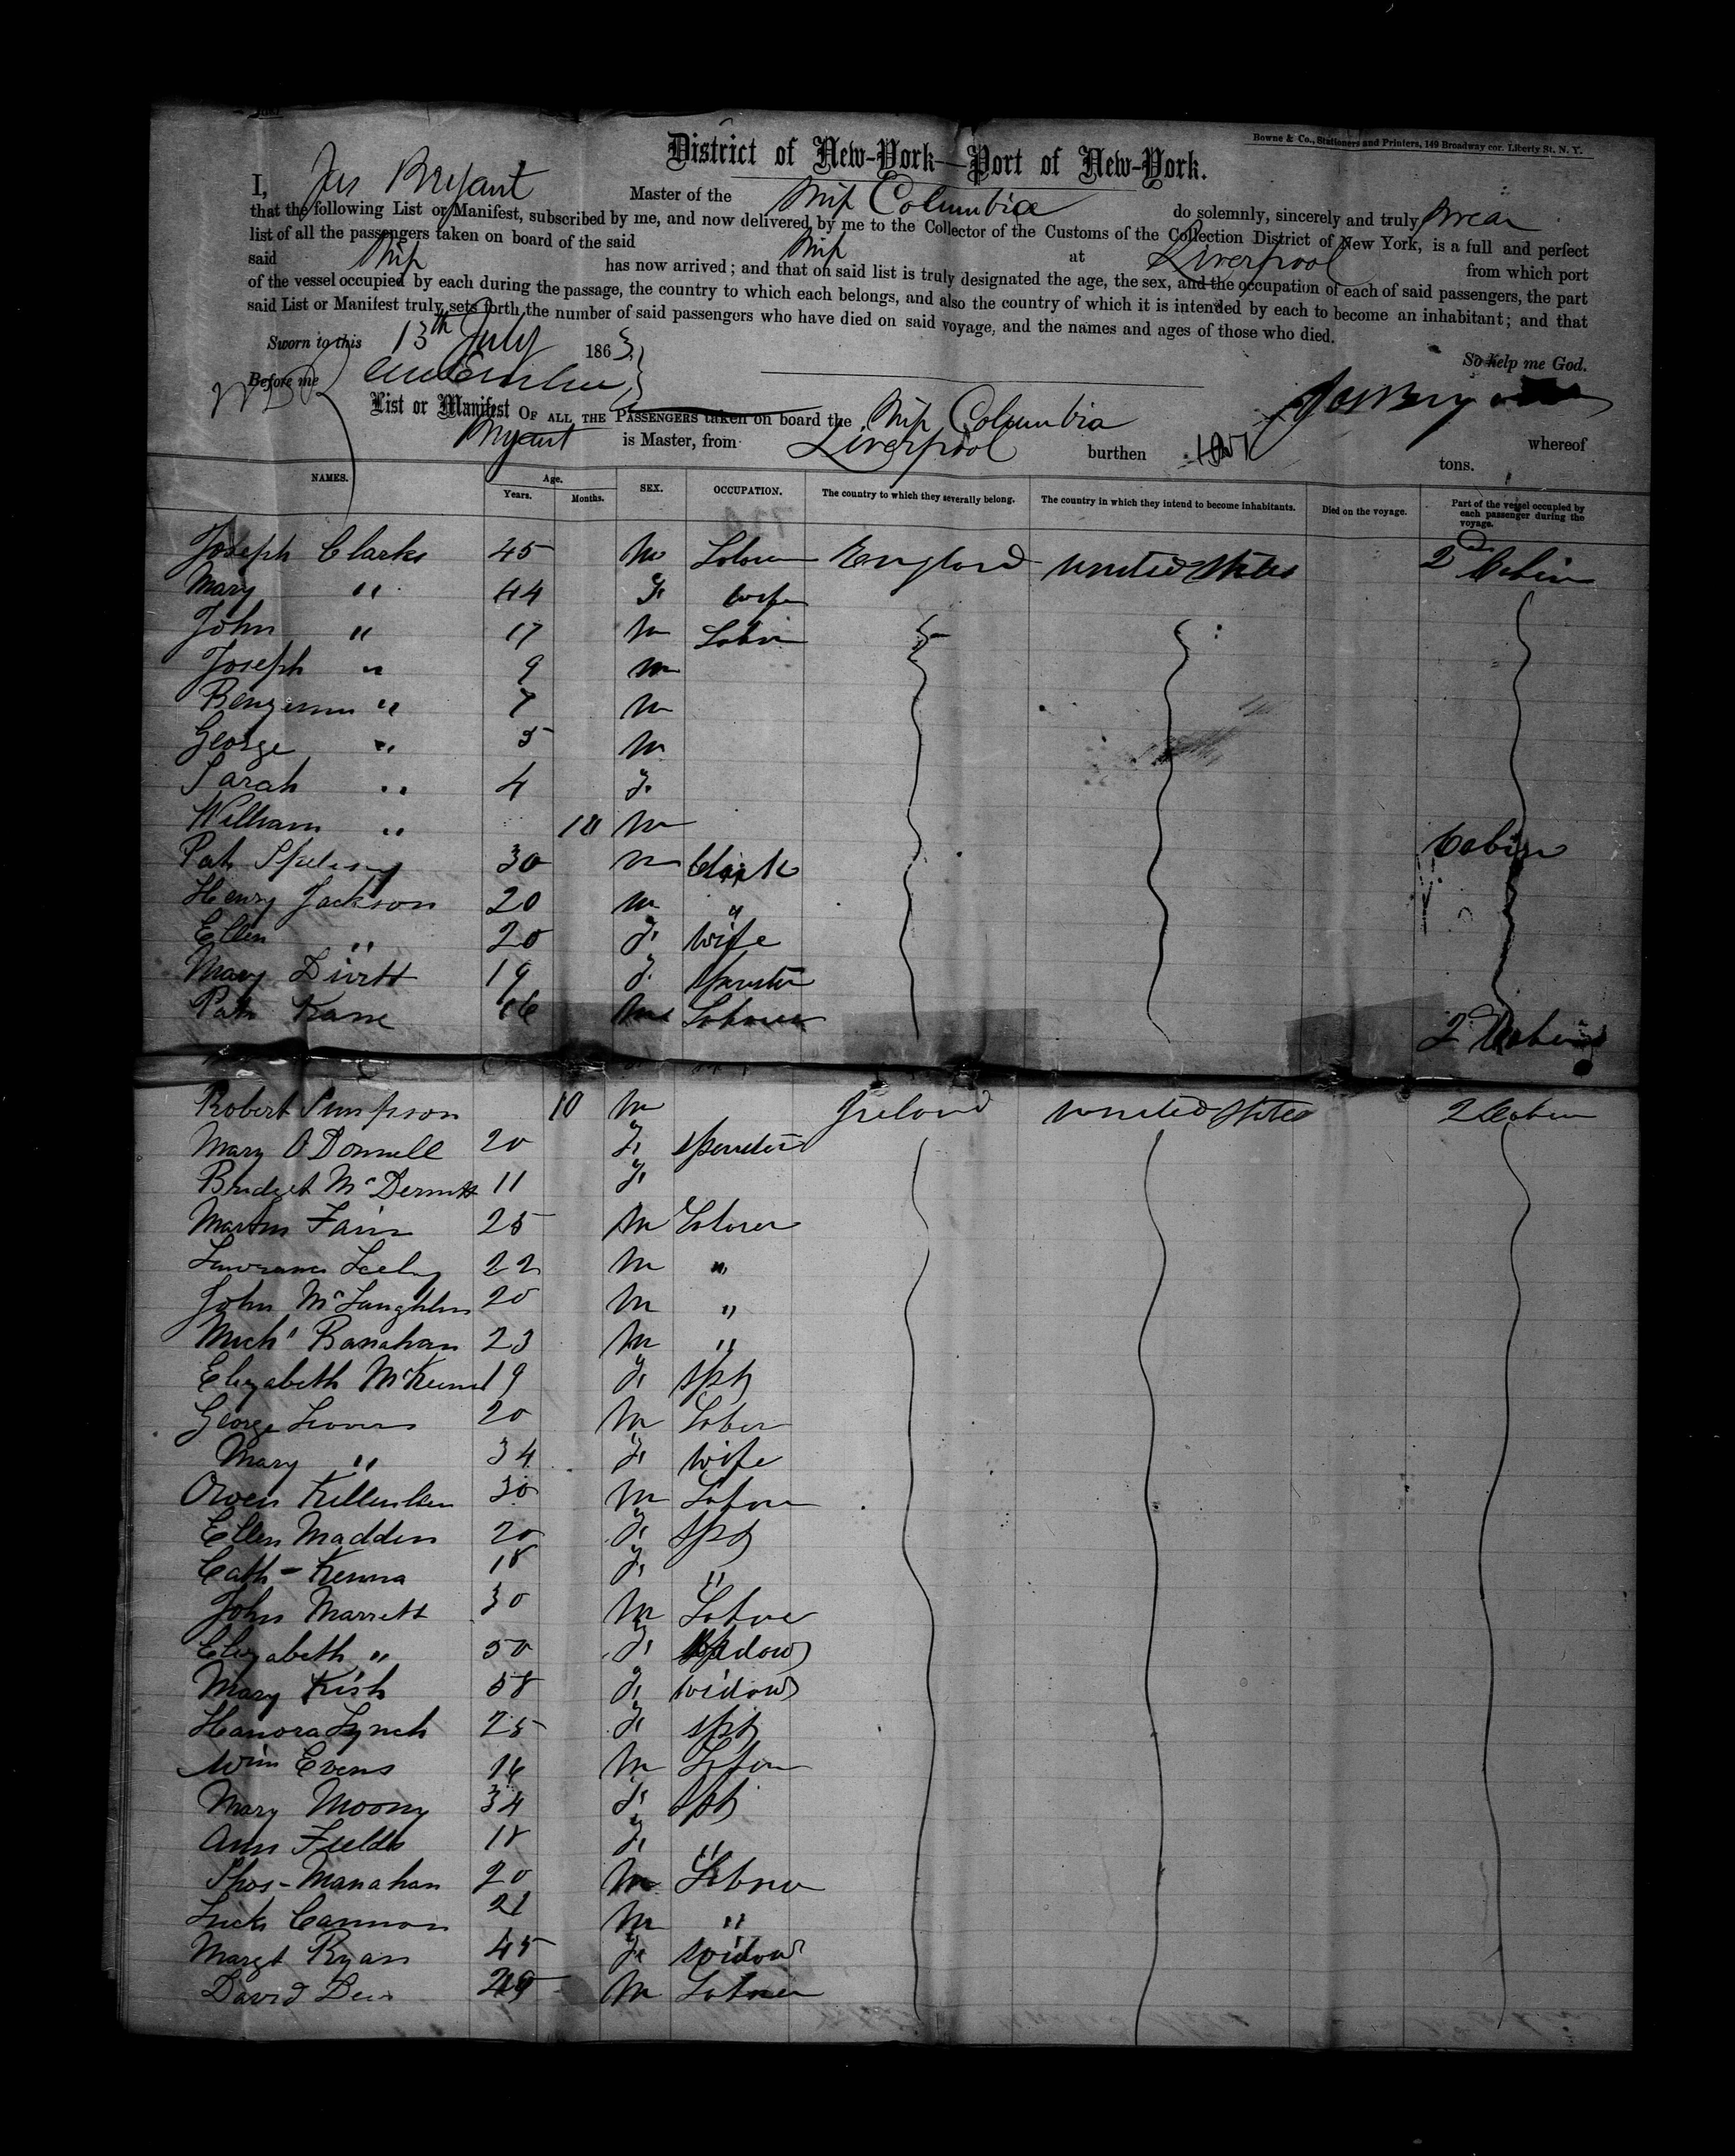 Bowne & Co., Stationers and Printers, 149 Broadway cor. Liberty St. N. Y.
District of New-York—Port of New-York.
I, Jas Bryant Master of the Ship Columbia do solemnly, sincerely and truly swear
that the following List or Manifest, subscribed by me, and now delivered by me to the Collector of the Customs of the Collection District of New York, is a full and perfect
list of all the passengers taken on board of the said Ship at Liverpool from which port
said Ship has now arrived; and that on said list is truly designated the age, the sex, and the occupation of each of said passengers, the part
of the vessel occupied by each during the passage, the country to which each belongs, and also the country of which it is intended by each to become an inhabitant; and that
said List or Manifest truly sets forth the number of said passengers who have died on said voyage, and the names and ages of those who died.
Sworn to this 13th July 1863 So help me God.
Before me
List or Manifest OF ALL THE PASSENGERS taken on board the Ship Columbia whereof
Bryant is Master, from Liverpool burthen tons.
NAMES. Age. Years. Months. SEX. OCCUPATION. The country to which they severally belong. The country in which they intend to become inhabitants. Died on the voyage. Part of the vessel occupied by each passenger during the voyage.
Joseph Clarks 45 M Labour England United States 2nd Cabin
Mary " 44 F wife
John " 17 M Labor
Joseph " 9 M
Benjemin " 7 M
George " 5 M
Sarah " 4 F
William " 10 M
Pat 30 M Clark Cabin
Henry Jackson 20 M "
Ellen " 20 F wife
Mary 19 F Spinster
Pat Kane 16 M Labourer 2 Cabin
Robert Simpson 10 M Ireland United States 2 Cabin
Mary O Donnell 20 F Spinster
Bridget McDermott 11 F
Martin Fair 25 M Laborer
Lawrence 22 M "
John McLaughlin 20 M "
Mich' Banahan 23 M "
Elizabeth 19 F Spt
George 20 M Labor
Mary " 34 F wife
Owen 30 M Labour
Ellen Madden 20 F Spt
Cath- Kenna 18 F "
John Marrett 30 M Labour
Elizabeth " 50 F
Mary Kish 58 F widow
Hanora Lynch 25 F Spt
Wm Evens 16 M Labour
Mary Moony 34 F Spt
Ann Fields 18 F "
Thos- Manahan 20 M Labour
Luck Cannon 21 M "
Margt Ryan 45 F widow
David M Labourer